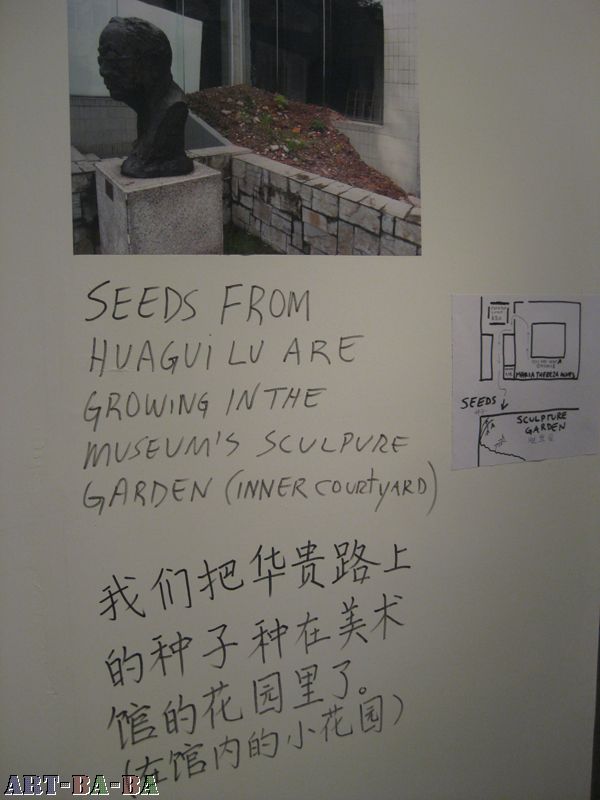 SEEDS FROM
HUAGUI LU ARE
GROWING IN THE
MUSEUM'S SCULPURE
GARDEN (INNER COURTYARD)
我们把华贵路上
的种子种在美术
馆的花园里了。
(在馆内的小花园)
MARIA THEREZA ALVES
SEEDS
SCULPTURE
GARDEN
ART-BA-BA